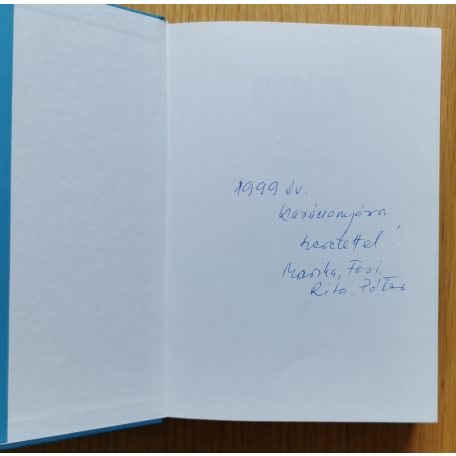 1999 év.
Karácsonyára
szeretettel!
Marika, Feri.
Rita. Péter